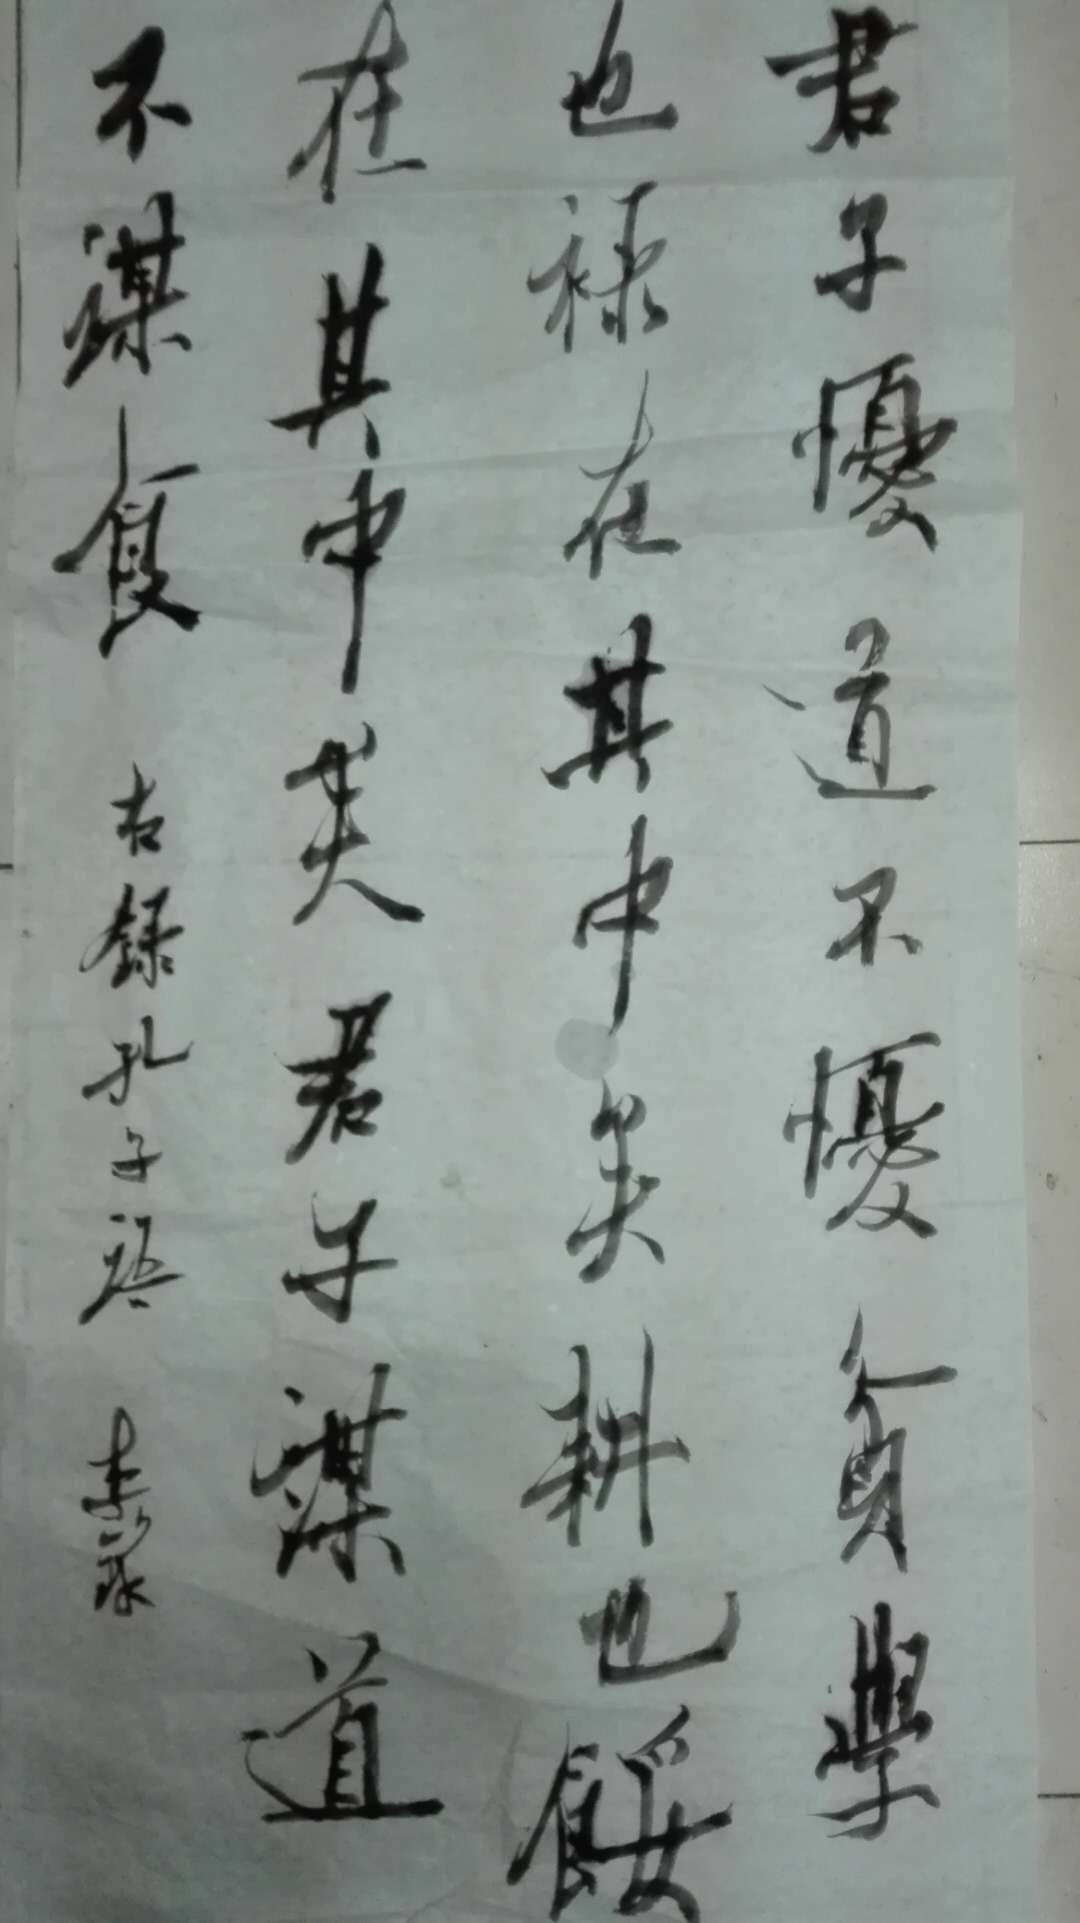 君子憂道不憂貧學
也祿在其中矣耕也餒
在其中矣君子謀道
不謀食
右錄孔子語